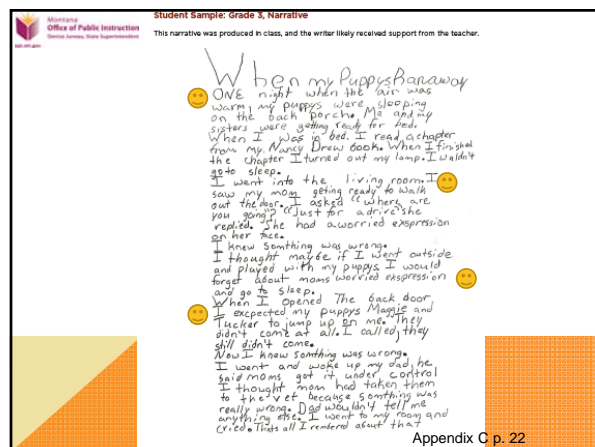 Montana
Office of Public Instruction
Denise Juneau, State Superintendent
opi.mt.gov
Student Sample: Grade 3, Narrative
This narrative was produced in class, and the writer likely received support from the teacher.
When my Puppys Ranaway
ONE night when the air was
warm, my puppys were sleeping
on the back porch. Me and my
sisters were getting ready for bed.
When I was in bed. I read a chapter
from my Nancy Drew book. When I finished
the chapter I turned out my lamp. I waldn't
go to sleep.
I went into the living room. I
saw my mom geting ready to walk
out the door. I asked "where are
you going?" "Just for a drive" she
replied. She had a worried exspression
on her face.
I knew somthing was wrong.
I thought maybe if I went outside
and played with my puppys I would
forget about moms worried ekspression
and go to sleep.
When I opened The back door,
I excpected my puppys Maggie and
Tucker to jump up on me. They
didn't come at all. I called, they
still didn't come.
Now I knew somthing was wrong.
I went and woke up my dad, he
said moms got it under control
I thought mom had taken them
to the vet because somthing was
really wrong. Dad wouldn't tell me
anything else. I went to my room and
cried. Thats all I rembered about that
Appendix C p. 22